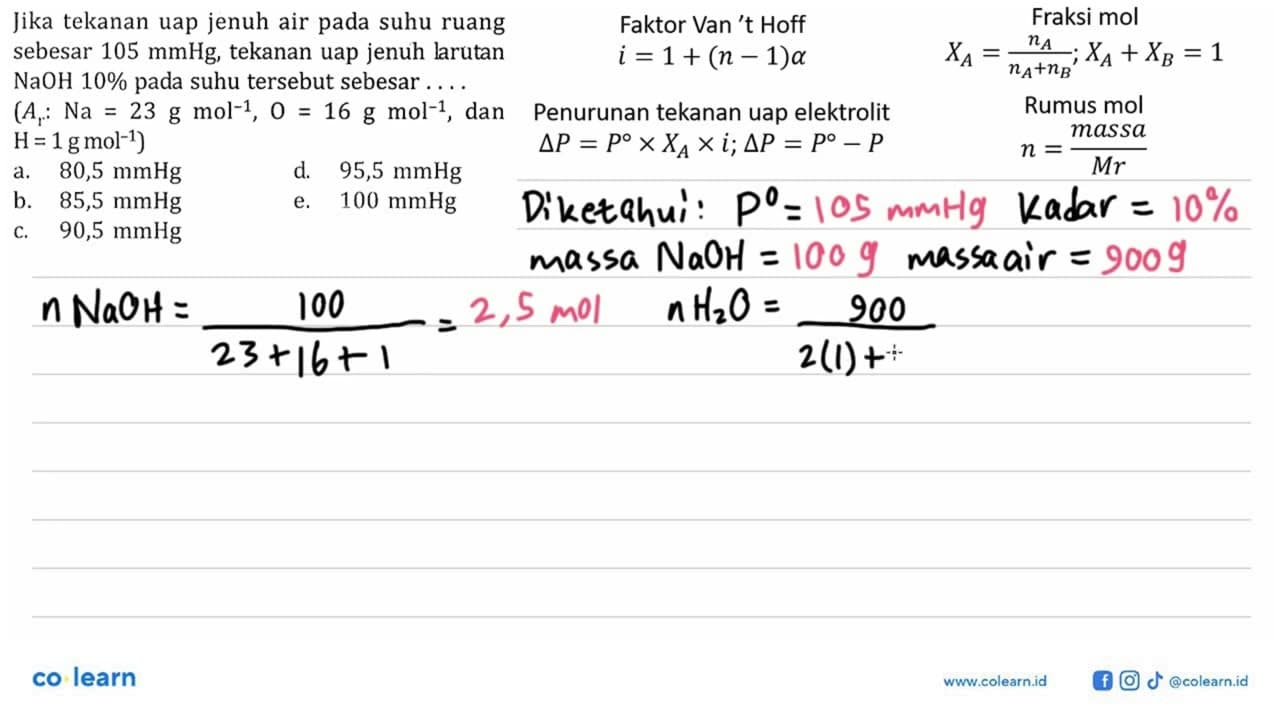 Jika tekanan uap jenuh air pada suhu ruang
sebesar 105 mmHg, tekanan uap jenuh larutan
NaOH 10% pada suhu tersebut sebesar . . . .
(Aᵣ: Na = 23 g mol⁻¹, O = 16 g mol⁻¹, dan
H = 1 g mol⁻¹)
a. 80,5 mmHg d. 95,5 mmHg
b. 85,5 mmHg e. 100 mmHg
c. 90,5 mmHg
Faktor Van 't Hoff
i = 1 + (n − 1)α
Penurunan tekanan uap elektrolit
ΔP = P° × X_A × i; ΔP = P° − P
Fraksi mol
X_A = n_A / (n_A+n_B); X_A + X_B = 1
Rumus mol
n = massa / Mr
Diketahui: P° = 105 mmHg Kadar = 10%
massa NaOH = 100 g massa air = 900 g
n NaOH = 100 / (23+16+1) = 2,5 mol n H₂O = 900 / 2(1)+
co learn
www.colearn.id
@colearn.id